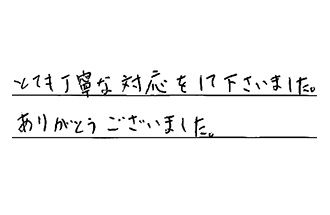 とても丁寧な対応をして下さいました。
ありがとうございました。